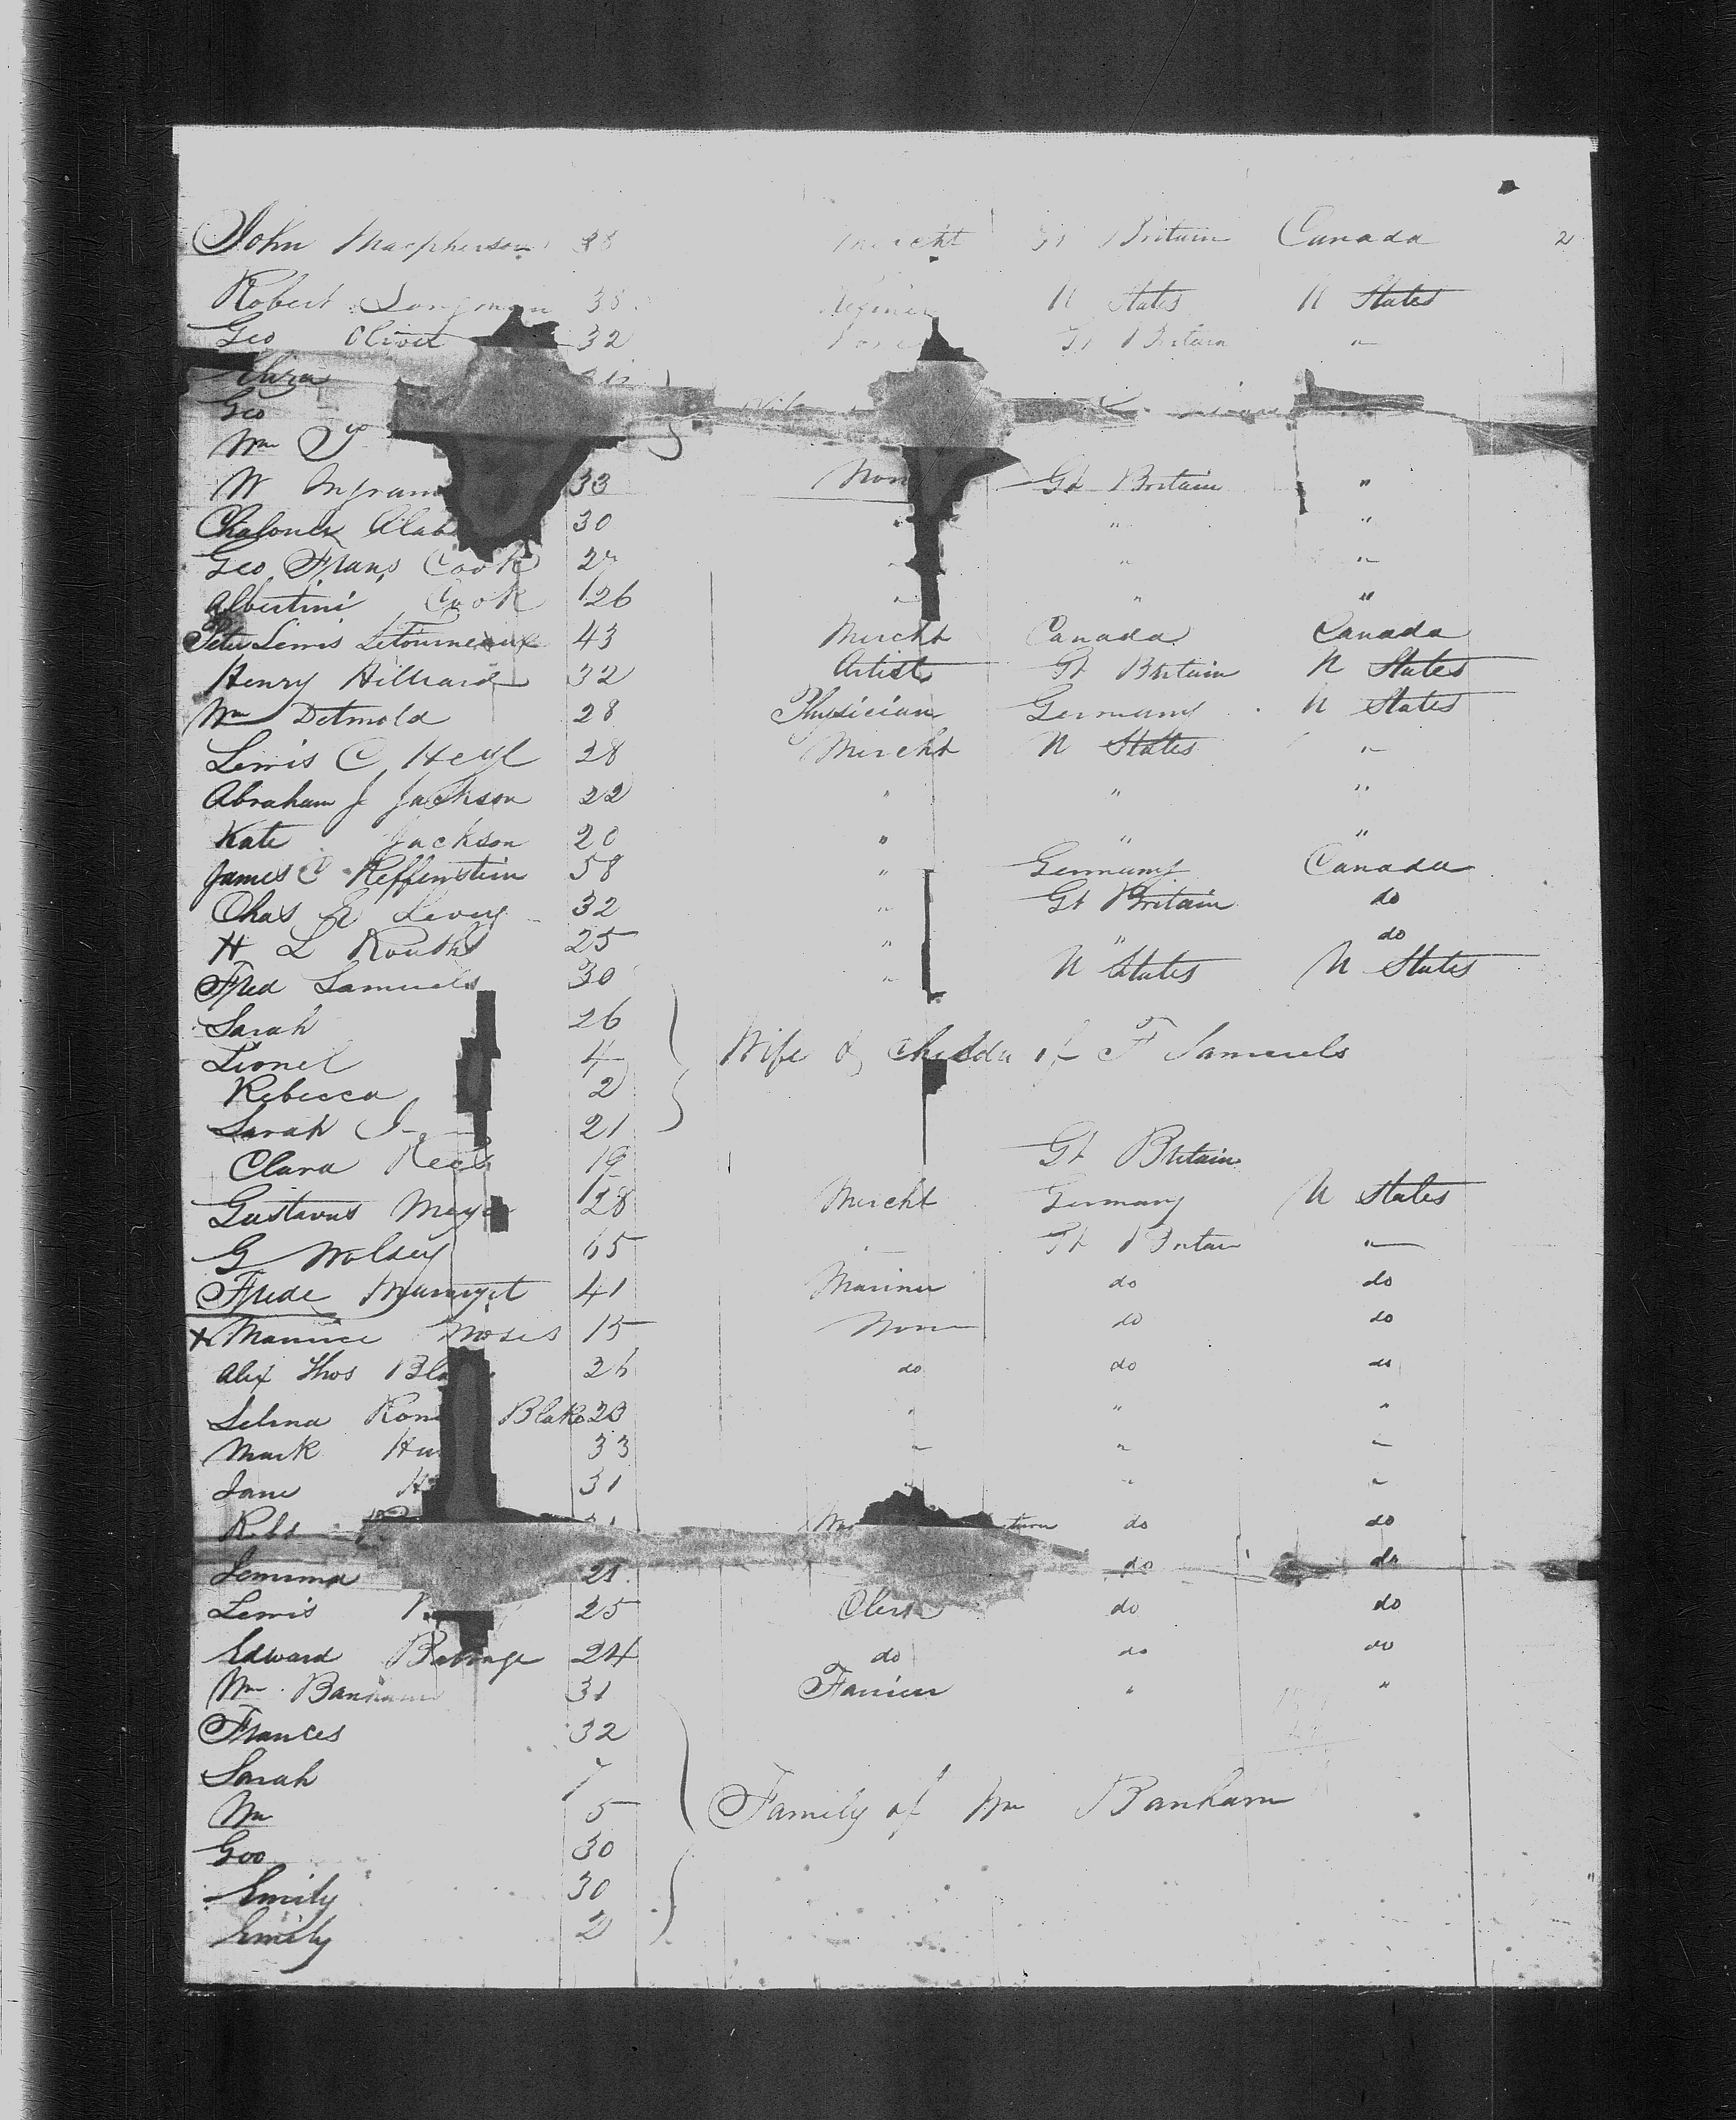 John Macpherson 38 Mercht Gt Britain Canada 2
Robert Longman 38 Refiner U States U States
Geo Olivet 32 Gt Britain "
Eliza
Geo
Wm
W Ingram 33 Non Gt Britain "
Chaloner Alab 30 " " "
Geo Frans Cook 27 " " "
Albertini Cook 26 " " "
Peter Lewis Letourneaux 43 Mercht Canada Canada
Henry Hilliard 32 Artist Gt Britain U States
Wm Detmold 28 Physician Germany U States
Lewis C Heyl 28 Mercht U States "
Abraham J Jackson 22 " " "
Kate Jackson 20 " " "
James C Reffenstein 58 " Germany Canada
Chas E Levey 32 " Gt Britain do
H L Routh 25 " " do
Fred Samuels 30 " U States U States
Sarah 26
Lionel 4 Wife & Childn of F Samuels
Rebecca 2
Sarah 21
Clara 19 Gt Britain
Gustavus Meye 28 Mercht Germany U States
G Wolsey 65 Gt Britain "
Frede Marryat 41 Mariner do do
x Maurice Moses 15 None do do
Alex Thos Bla 26 do do do
Selina Blake 23 " " "
Mark Hu 33 " " "
Jane H 31 " " "
Robt do do
Jemima 21 do do
Lewis 25 Clerk do do
Edward 24 do do do
Wm Banham 31 Farrier " "
Frances 32
Sarah 7
Wm 5 Family of Wm Banham
Geo 30
Emily 30
Emily 2